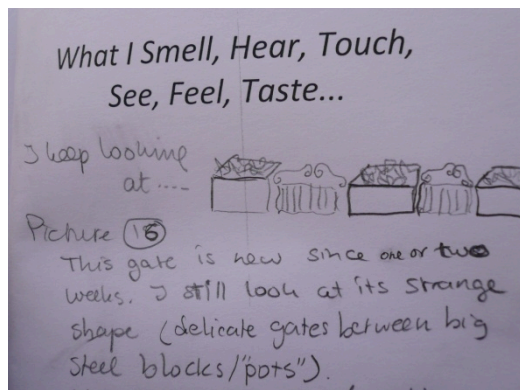 What I Smell, Hear, Touch,
See, Feel, Taste...
I keep looking
at ....
Picture 16
This gate is new since one or two
weeks. I still look at its strange
shape (delicate gates between big
steel blocks/"pots").